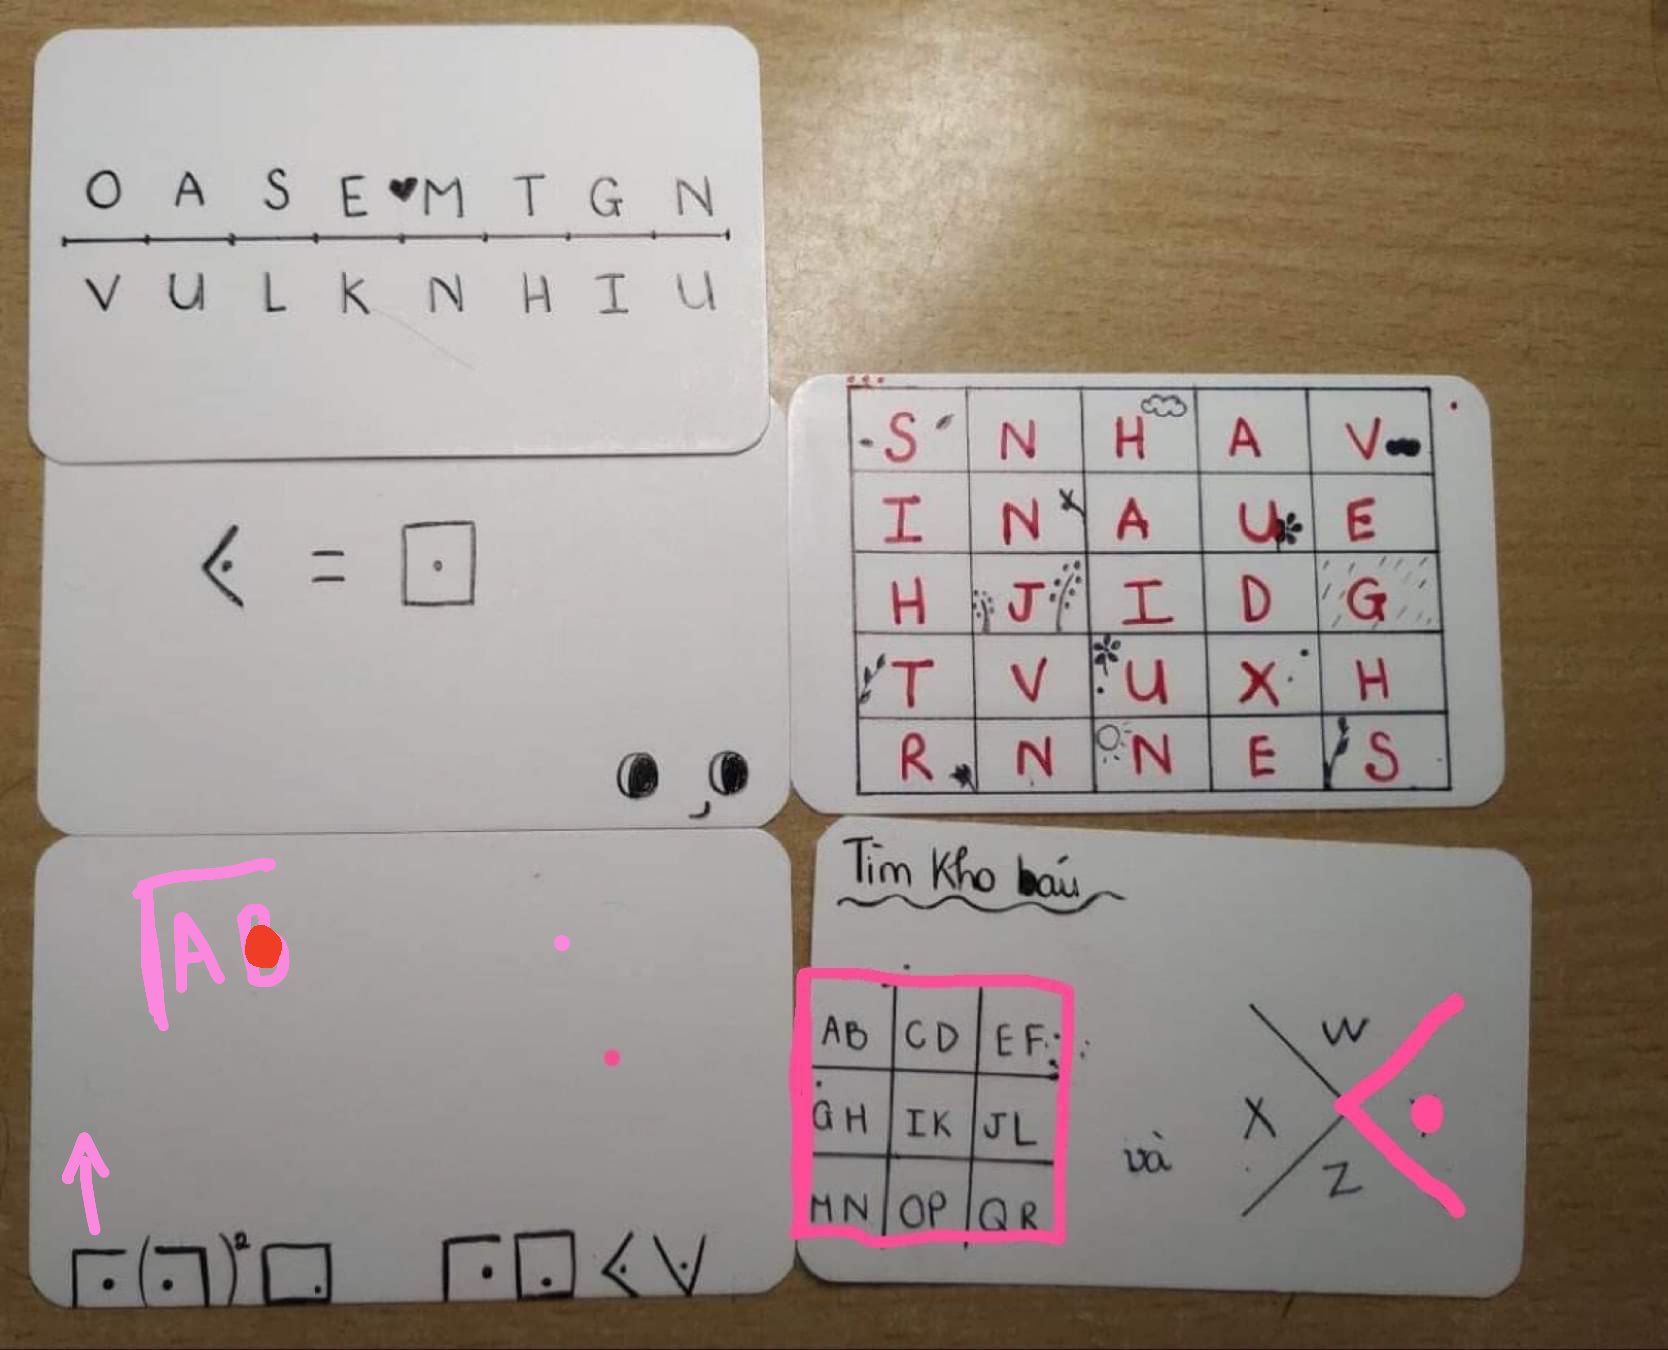 O A S E ♥ M T G N
V U L K N H I U
< = □
S N H A V
I N A U E
H J I D G
T V U X H
R N N E S
AB
( )² 
Tìm Kho báu
AB CD EF
GH IK JL
MN OP QR
và
W
X
Z